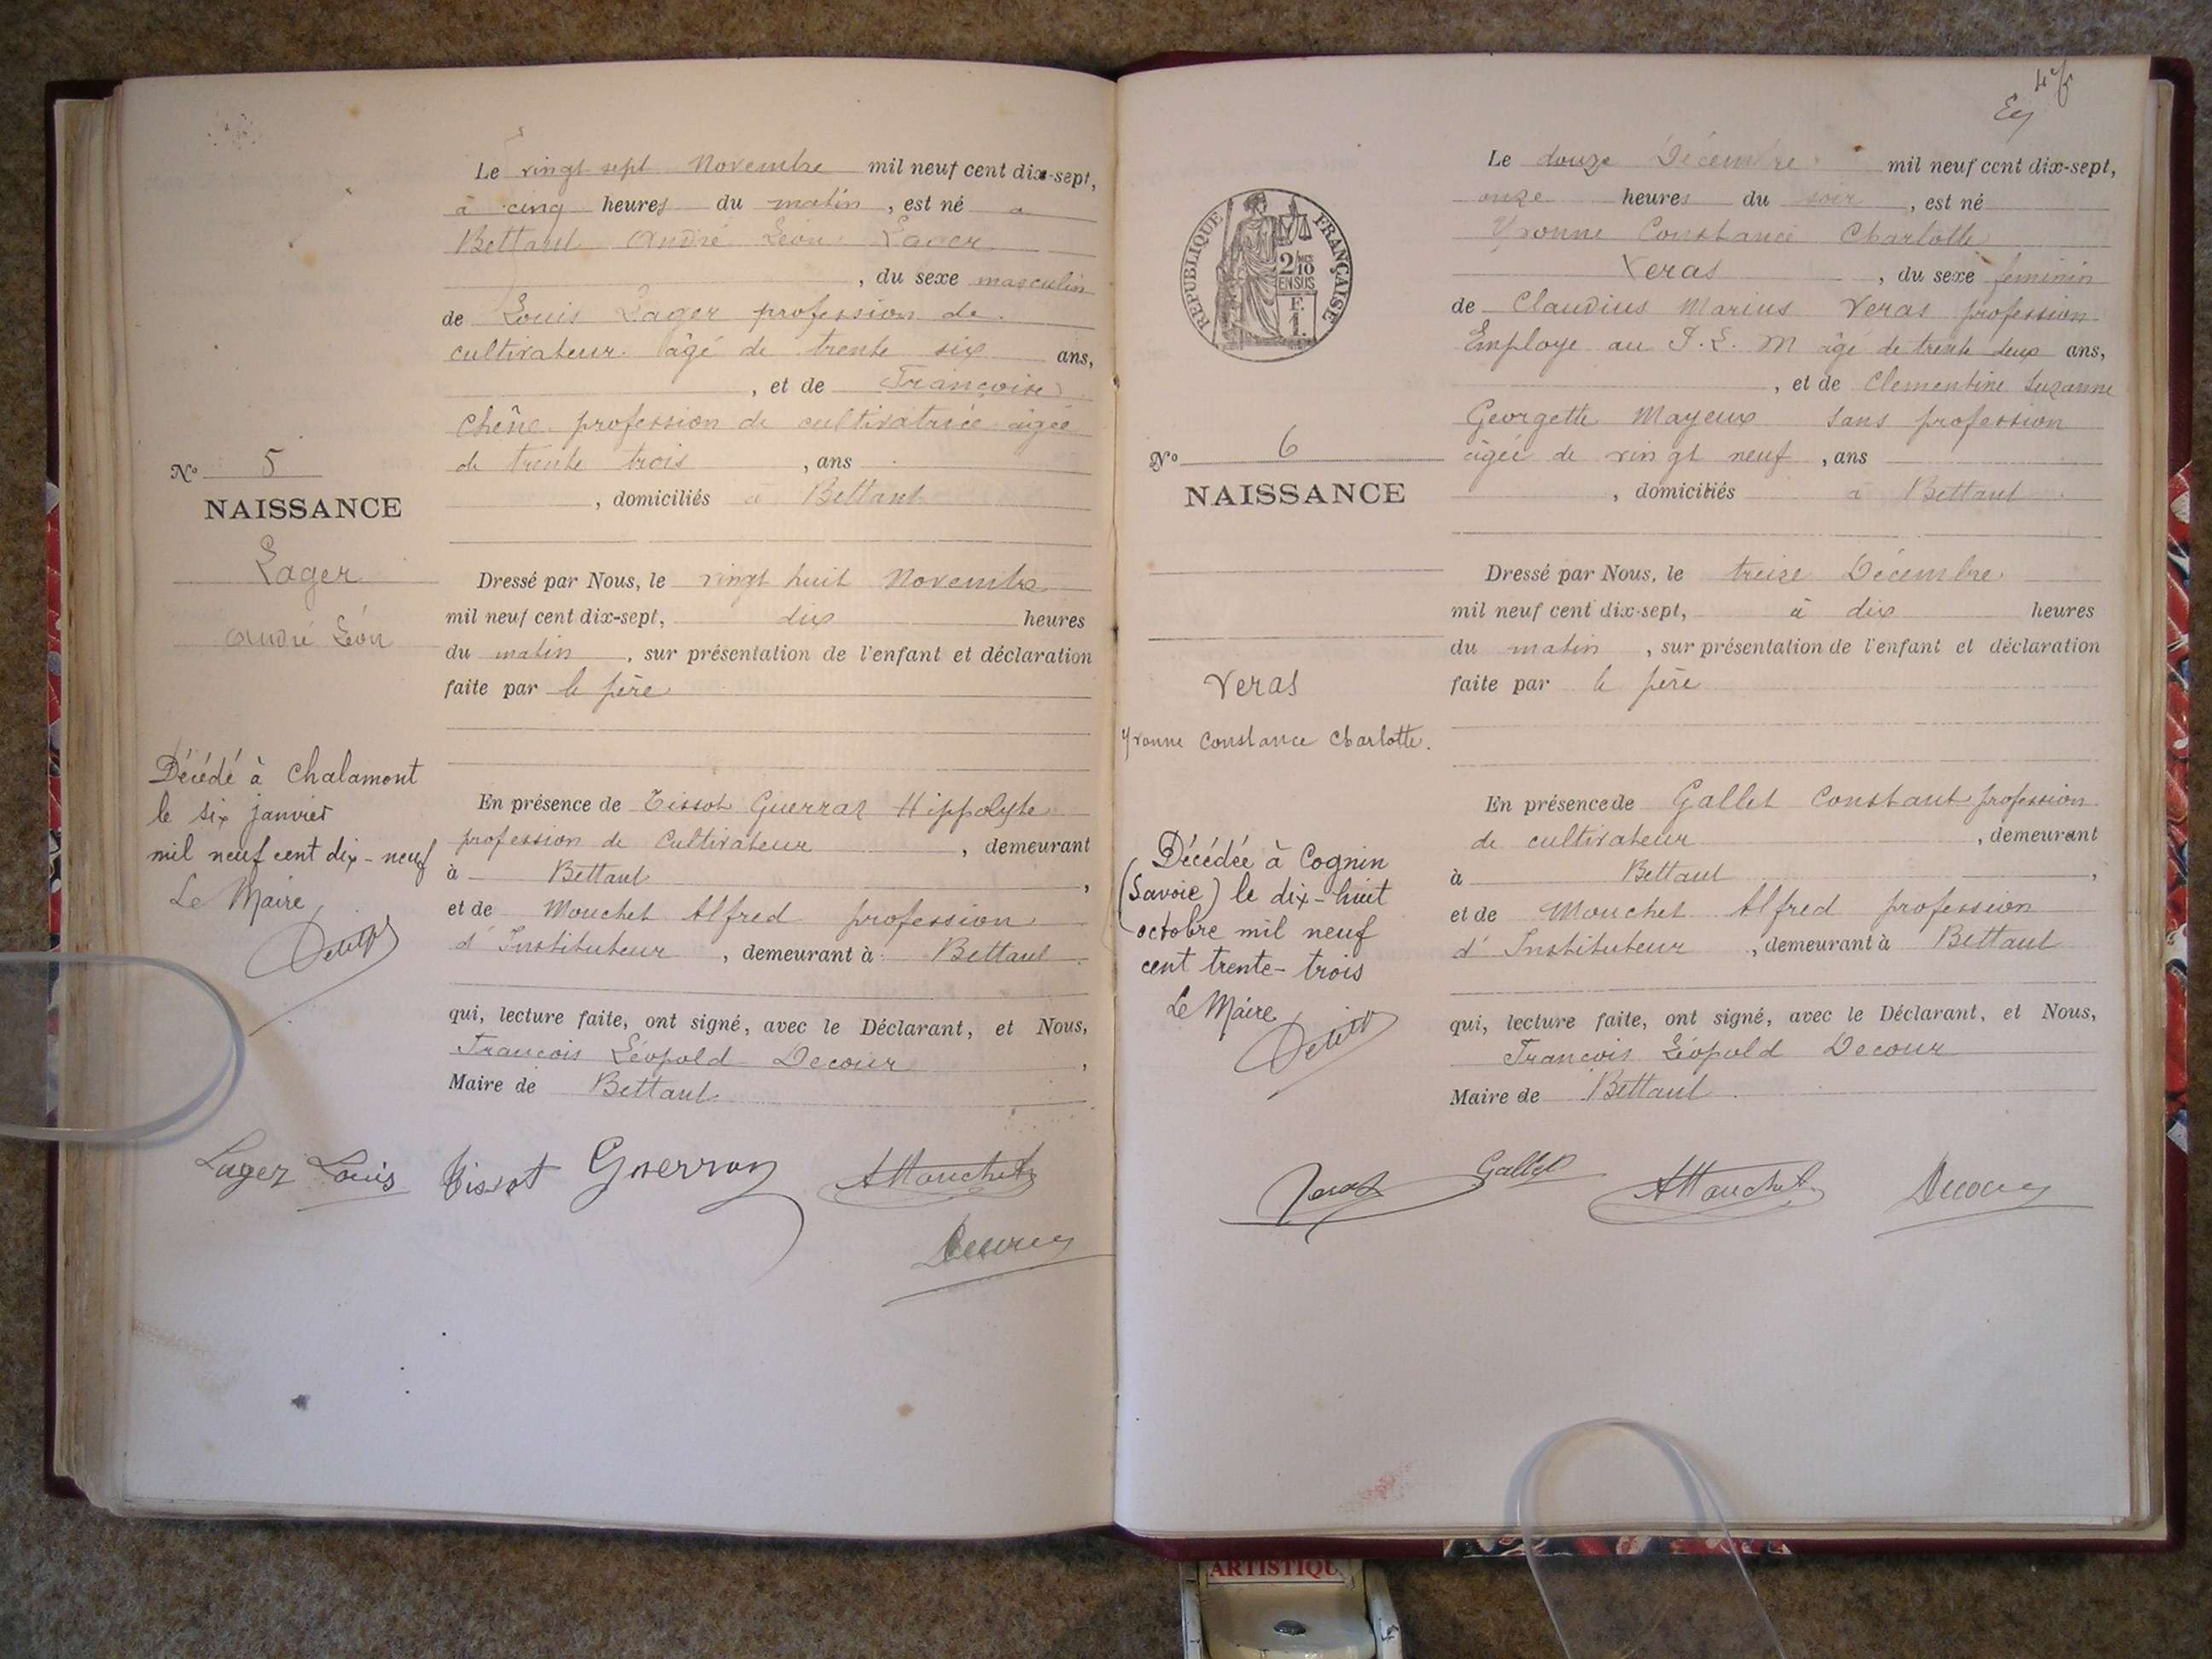 Le vingt sept Novembre mil neuf cent dix-sept,
à cinq heures du matin, est né a
Bettant André Léon Lager
, du sexe masculin
de Louis Lager profession de
cultivateur âgé de trente six ans,
, et de Françoise
Chêne profession de cultivatrice âgée
de trente trois, ans
, domiciliés à Bettant
N° 5
NAISSANCE
Lager
André Léon
Dressé par Nous, le vingt huit Novembre
mil neuf cent dix-sept, dix heures
du matin, sur présentation de l'enfant et déclaration
faite par le père
Décédé à Chalamont
le six janvier
mil neuf cent dix-neuf
Le Maire
En présence de Tissot Guerraz Hippolyte
profession de Cultivateur, demeurant
à Bettant,
et de Mouchet Alfred profession
d'Instituteur, demeurant à Bettant
qui, lecture faite, ont signé, avec le Déclarant, et Nous,
François Léopold Decour,
Maire de Bettant
Lager Louis Tissot Guerraz AMouchet
Decour
47
REPUBLIQUE FRANÇAISE
2/10
EN SUS
F.
1.
Le douze Décembre mil neuf cent dix-sept,
onze heures du soir, est né
Yvonne Constance Charlotte
Veras, du sexe feminin
de Claudius Marius Veras profession
Employe au P. L. M âgé de trente deux ans,
, et de Clementine Suzanne
Georgette Mayeux sans profession
âgée de vingt neuf, ans
, domiciliés à Bettant
N° 6
NAISSANCE
Veras
Yvonne Constance Charlotte.
Dressé par Nous, le treize Décembre
mil neuf cent dix-sept, à dix heures
du matin, sur présentation de l'enfant et déclaration
faite par le père
Décédée à Cognin
(Savoie) le dix-huit
octobre mil neuf
cent trente-trois
Le Maire
En présence de Gallet Constant profession
de cultivateur, demeurant
à Bettant,
et de Mouchet Alfred profession
d'Instituteur, demeurant à Bettant
qui, lecture faite, ont signé, avec le Déclarant, et Nous,
François Léopold Decour
Maire de Bettant
Veras Gallet AMouchet Decour
ARTISTIQU